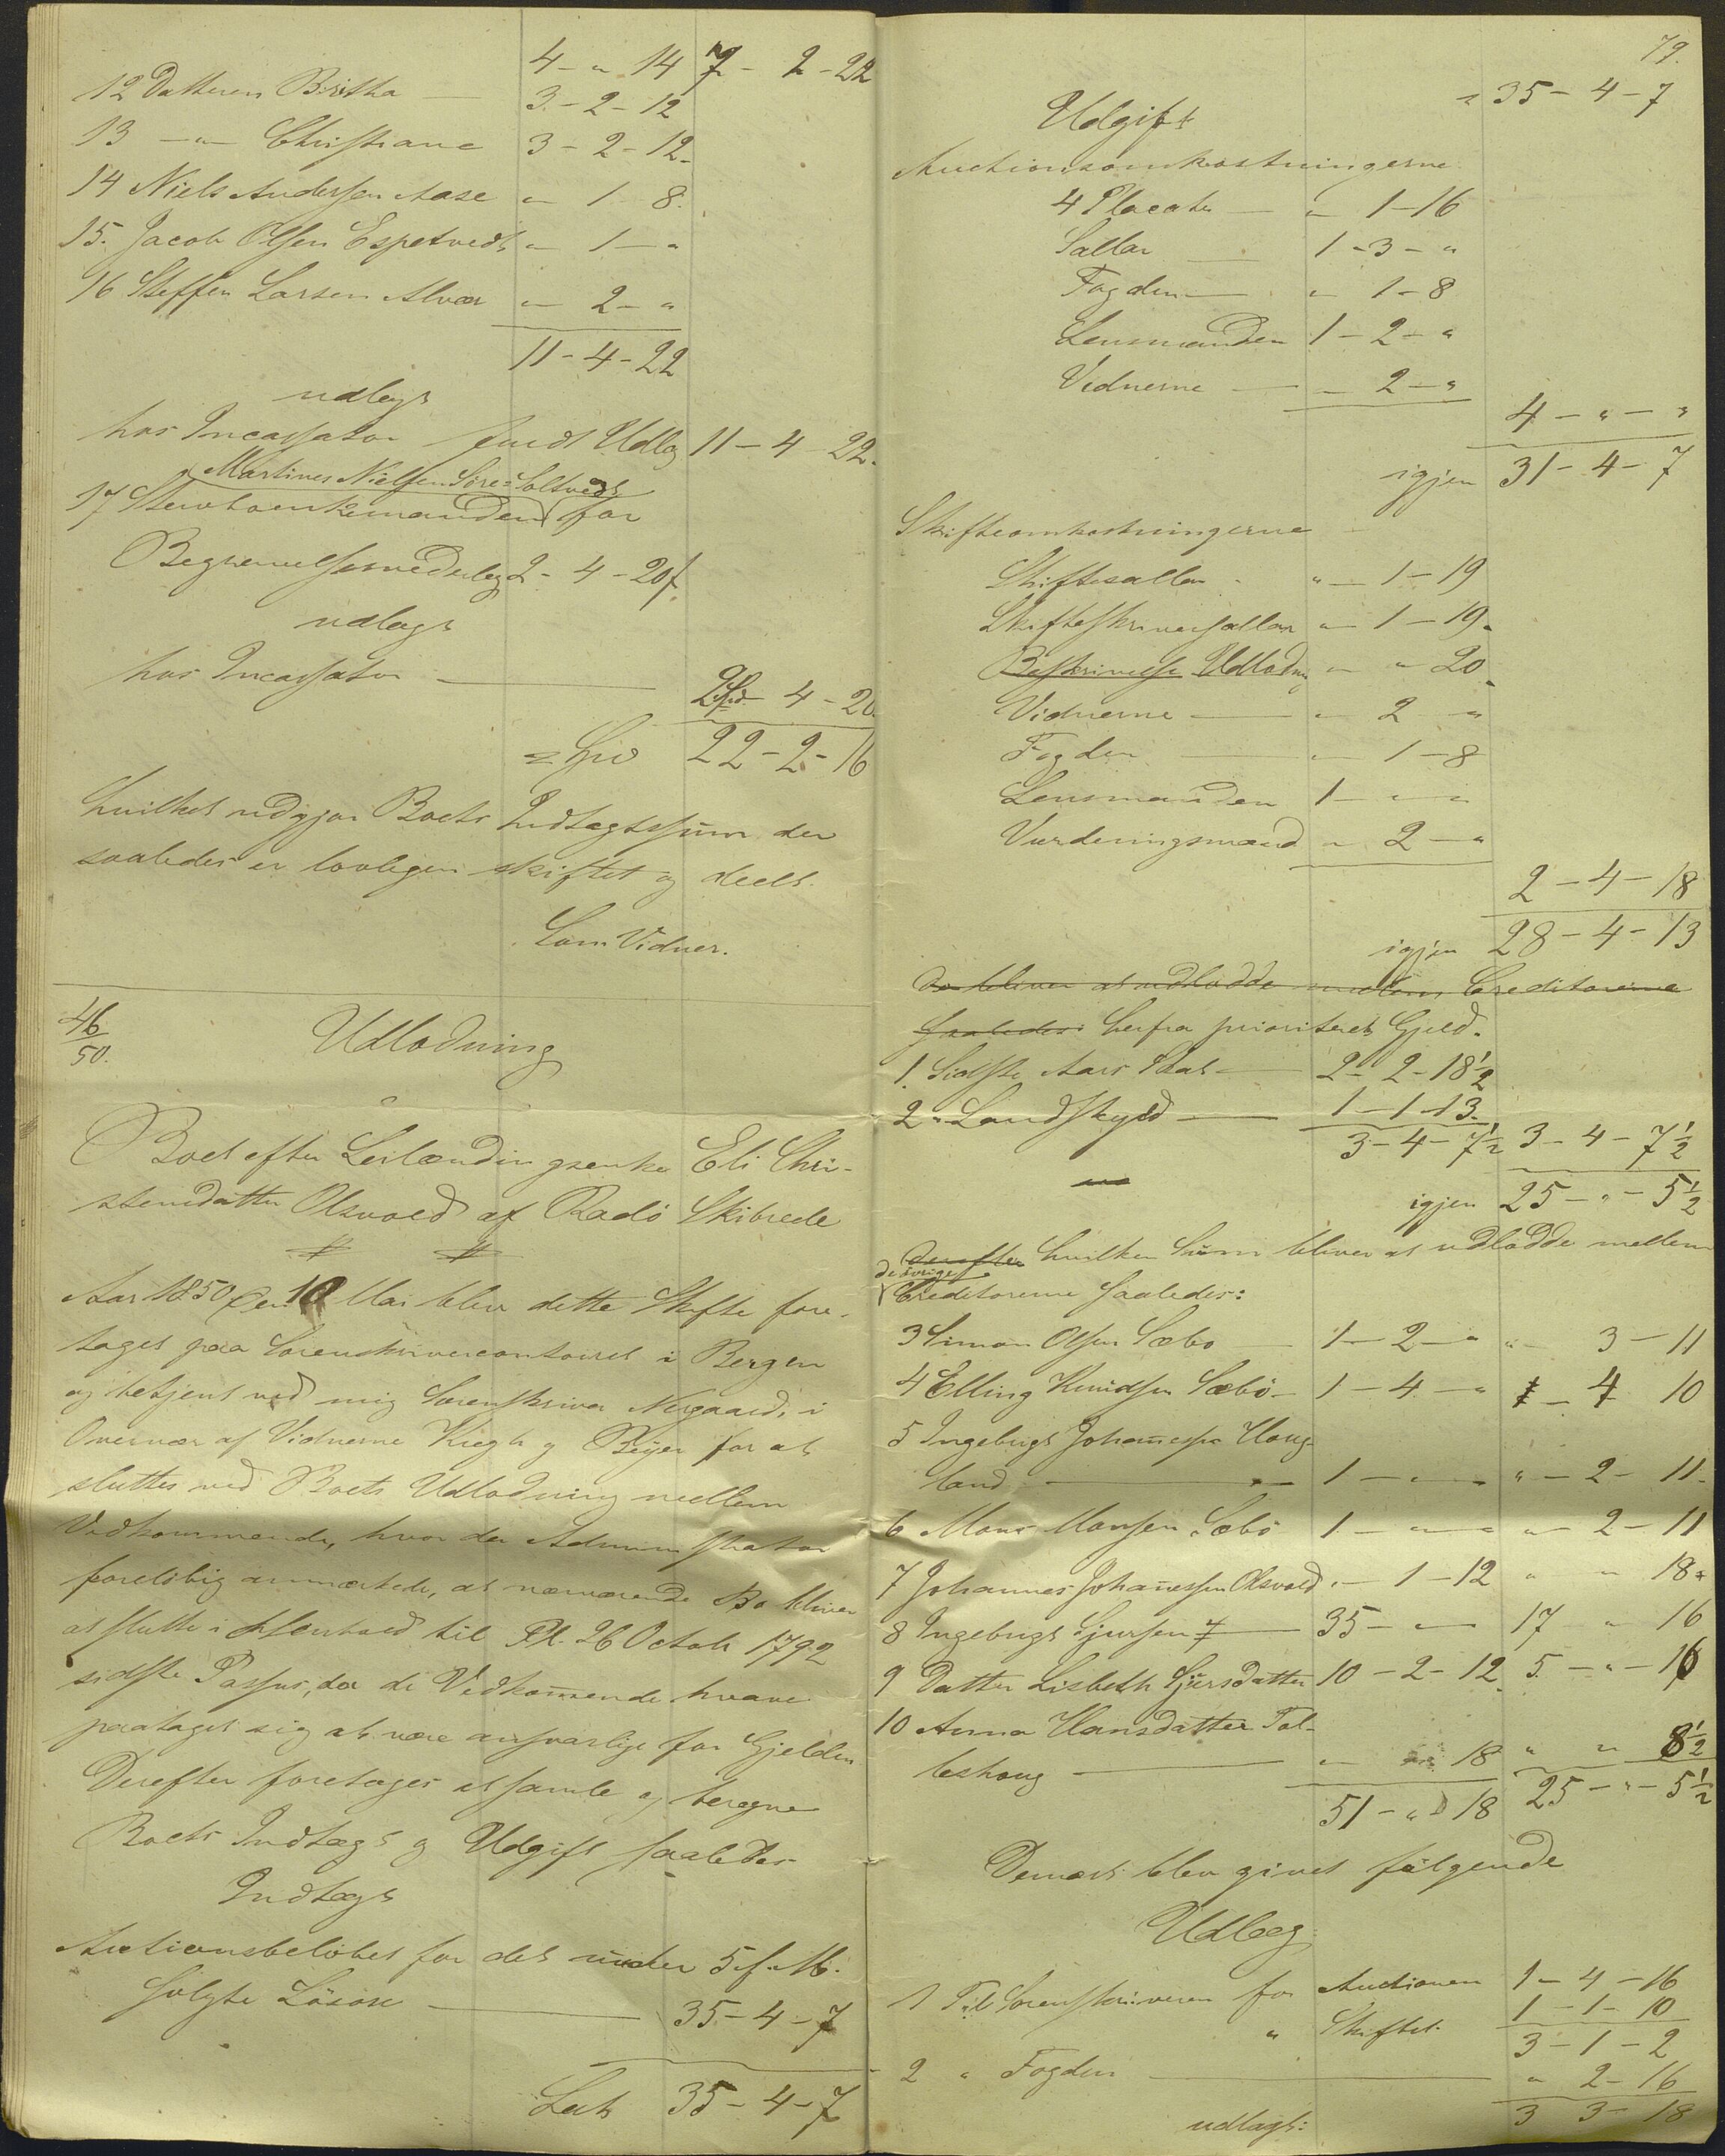 4 - " 14 7 - 2 - 22
12 Datteren Britha — 3 - 2 - 12
13 — " — Christiane 3 - 2 - 12
14 Niels Andersen Aase " 1 - 8
15. Jacob Olsen Espetvedt " 1 - "
16 Steffen Larsen Alver " 2 - "
11 - 4 - 22
udlagt
hos Incassator Udlæg 11 - 4 - 22
Martines Nielsen Søre=Soltvedt
17 for
Begravelsesmederlag 2 - 4 - 20 f.
udlagt
hos Incassator — 2 Spd 4 - 20
= Spd 22 - 2 - 16
hvilket udgjør Boets Indtægtssum der
saaledes er lovligen skiftet og deelt.
Som Vidner.
46/50.
Udlodning
i
Boet efter Leilændingsenke Eli Chri-
stensdatter Olsvold af Radö Skibrede
Aar 1850 den 10 Mai blev dette Skifte fore-
taget paa Sorenskrivercontoiret i Bergen
og betjent ved mig Sorenskriver Nergaard, i
Overvær af Vidnerne Kiegh og Beÿer for at
sluttes ved Boets Udlodning mellem
Vedkommende, hvor da Administrator
foreløbig anmærkede, at nærværende Bo bliver
at slutte i Henhold til Pl. 26 Octob 1792
sidste Passus, da de Vedkommende have
paataget sig at være ansvarlige for Gjelden
Derefter foretages at samle og beregne
Boets Indtægt og Udgift saaledes
Indtægt
Auctionsbeløbet for det under 5 f. M.
solgte Løsøre — 35 - 4 - 7
Lats 35 - 4 - 7
79.
= 35 - 4 - 7
Udgift
Auctionsomkostningerne
4 Placater — " 1 - 16
Sallar — 1 - 3 - "
Fogden — " 1 - 8
Lensmanden 1 - 2 - "
Vidnerne — " 2 - "
4 - " - "
igjen 31 - 4 - 7
Skifteomkostningerne
Skiftesallar " - 1 - 19
Skifteskriversallar " - 1 - 19
Beskrivelse Udlodng " " 20
Vidnerne — " 2 "
Fogden — " 1 - 8
Lensmanden 1 - " - "
Vurderingsmænd " 2 - "
2 - 4 - 18
igjen 28 - 4 - 13
bliver at udlodde mellem Creditorerne
saaledes: herfra prioriteret Gjeld.
1. Sidste Aars Skat — 2 - 2 - 18½
2 " Landskyld — 1 - 1 - 13
3 - 4 - 7½ 3 - 4 - 7½
igjen 25 - " - 5½
Derefter hvilken Sum bliver at udlodde mellem
de øvrige
Creditorerne saaledes:
3 Simon Olsen Sæbø — 1 - 2 - " " - 3 - 11
4 Elling Knudsen Sæbö — 1 - 4 - " " - 4 10
5 Ingebrigt Johannessen Haug-
land — 1 - " - " " - 2 - 11
6 Mons Monsen Sæbö 1 - " - " " - 2 - 11
7 Johannes Johannessen Olsvold " - 1 - 12 " " 18
8 Ingebrigt Sjursen — 35 - " - 17 " 16
9 Datter Lisbeth Sjursdatter 10 - 2 - 12 5 - " - 16
10 Anna Hansdatter Tol-
leshoug — " - " 18 " " 8½
51 - " - 18 25 - " - 5½
Dernæst blev givet følgende
Udlæg
1 Til Sorenskriveren for Auctionen 1 - 4 - 16
" Skiftet 1 - 1 - 10
3 - 1 - 2
2 " Fogden — " 2 - 16
udlagt: 3 3 - 18